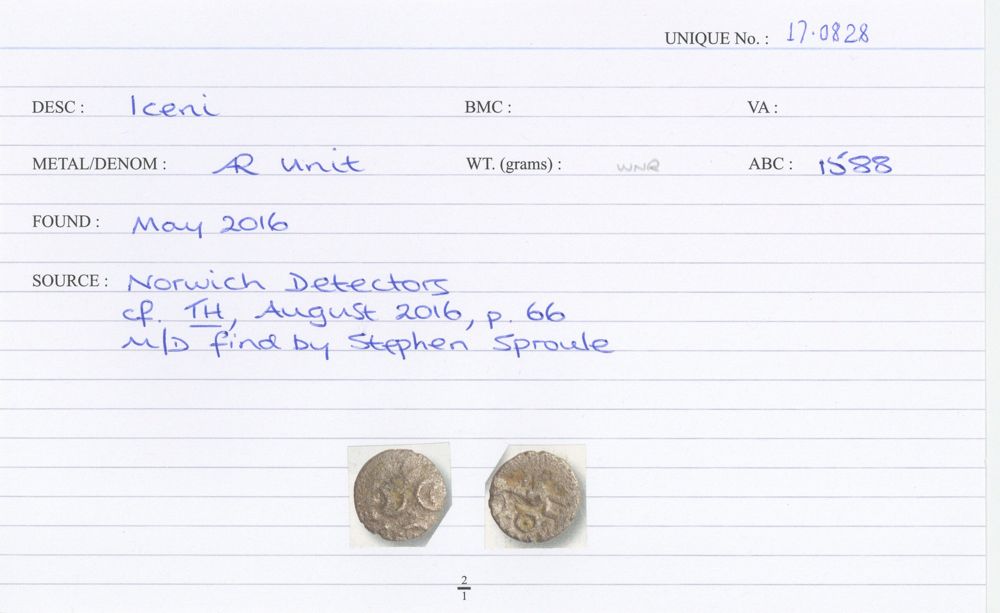 UNIQUE No. : 17.0828
DESC : Iceni BMC : VA :
METAL/DENOM : AR Unit WT. (grams) : WNR ABC : 1588
FOUND : May 2016
SOURCE : Norwich Detectors
cf. TH, August 2016, p. 66
M/D find by Stephen Sproule
2
1